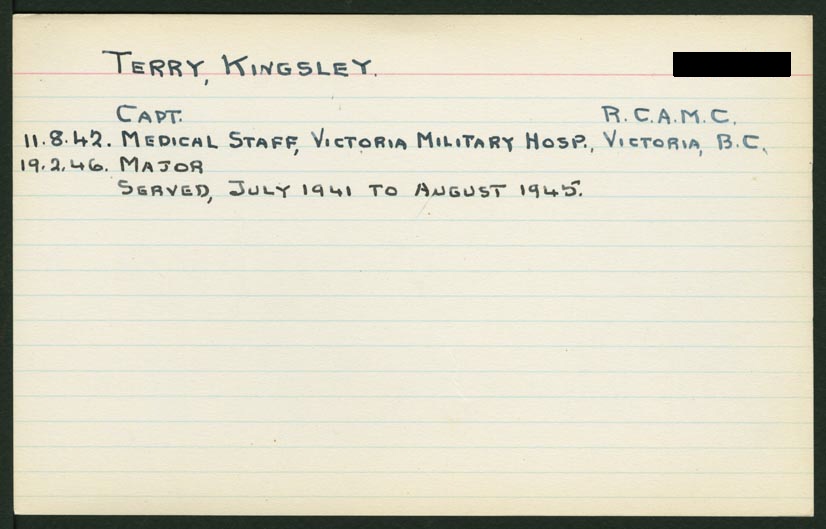 TERRY, KINGSLEY.
CAPT. R.C.A.M.C.
11.8.42. MEDICAL STAFF, VICTORIA MILITARY HOSP., VICTORIA, B.C.
19.2.46. MAJOR
SERVED, JULY 1941 TO AUGUST 1945.